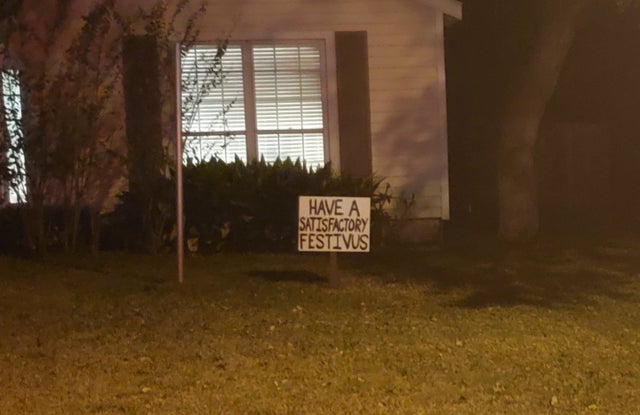 HAVE A
SATISFACTORY
FESTIVUS